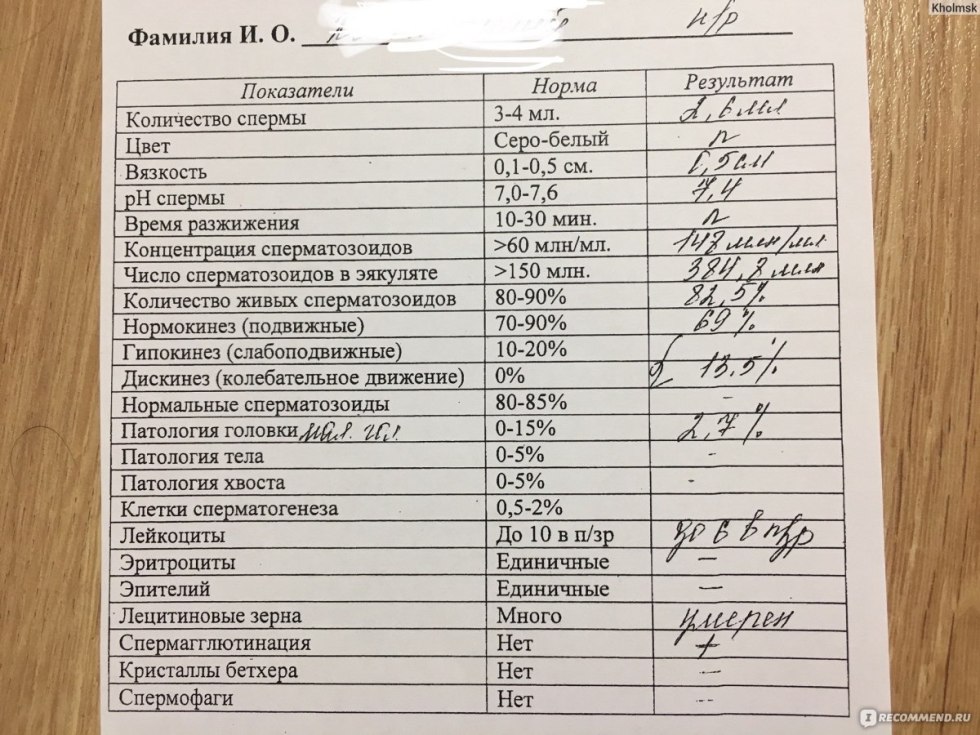 Kholmsk
Фамилия И. О.
Показатели Норма Результат
Количество спермы 3-4 мл. 2,6 мл
Цвет Серо-белый n
Вязкость 0,1-0,5 см. 0,5 см
pH спермы 7,0-7,6 7,4
Время разжижения 10-30 мин. n
Концентрация сперматозоидов >60 млн/мл. 148 млн/мл
Число сперматозоидов в эякуляте >150 млн. 384,8 млн
Количество живых сперматозоидов 80-90% 82,5%
Нормокинез (подвижные) 70-90% 69%
Гипокинез (слабоподвижные) 10-20%
Дискинез (колебательное движение) 0% 13,5%
Нормальные сперматозоиды 80-85% -
Патология головки 0-15% 2,7%
Патология тела 0-5% -
Патология хвоста 0-5% -
Клетки сперматогенеза 0,5-2%
Лейкоциты До 10 в п/зр до 6 в п/зр
Эритроциты Единичные —
Эпителий Единичные —
Лецитиновые зерна Много умерен
Спермагглютинация Нет +
Кристаллы бетхера Нет --
Спермофаги Нет --
RECOMMEND.RU